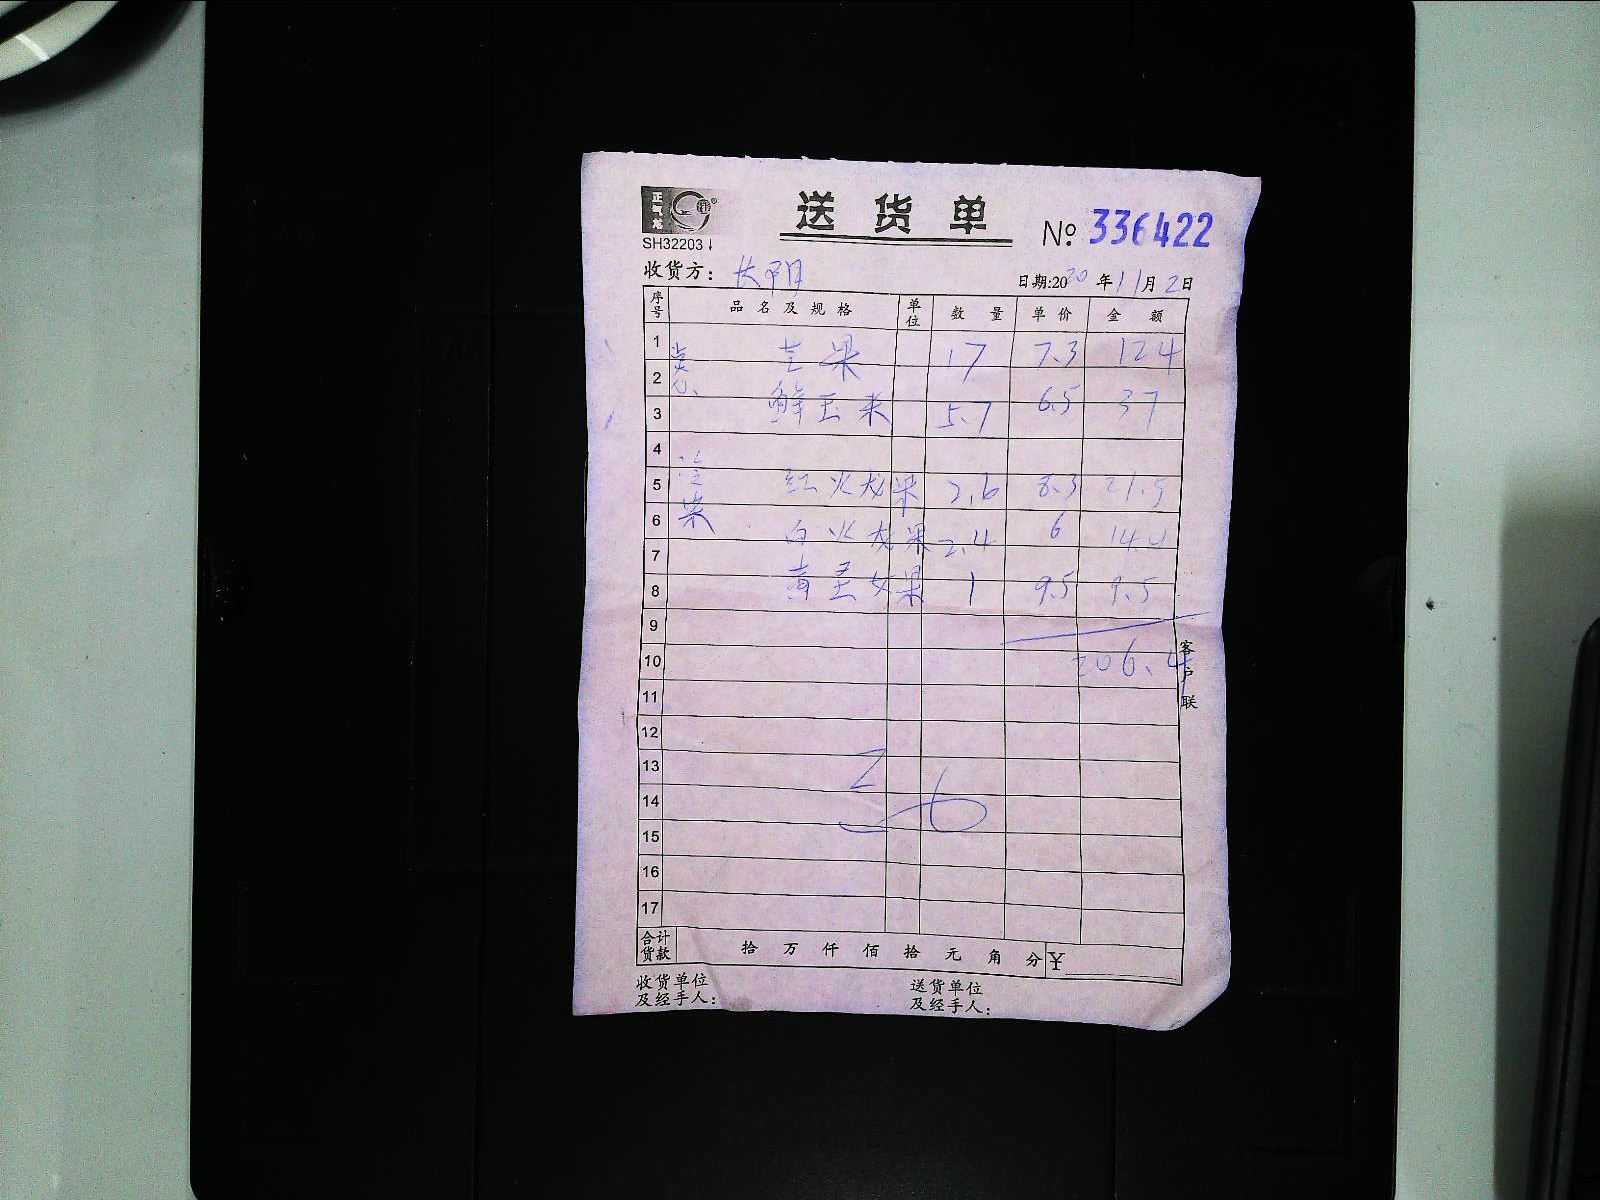 送货单
№ 336422
SH32203
收货方: 长阳
日期:2020年11月2日
序号 品名及规格 单位 数量 单价 金额
1 芒果 17 7.3 124
2 点心
3 鲜玉米 5.7 6.5 37
4
5 红火龙果 2.6 8.3 21.5
6 白火龙果 2.4 6 14.4
7
8 黄圣女果 1 9.5 9.5
9
10 206.4
11
12
13
14
15
16
17
客户联
合计货款 拾 万 仟 佰 拾 元 角 分 ¥
收货单位及经手人:
送货单位及经手人: